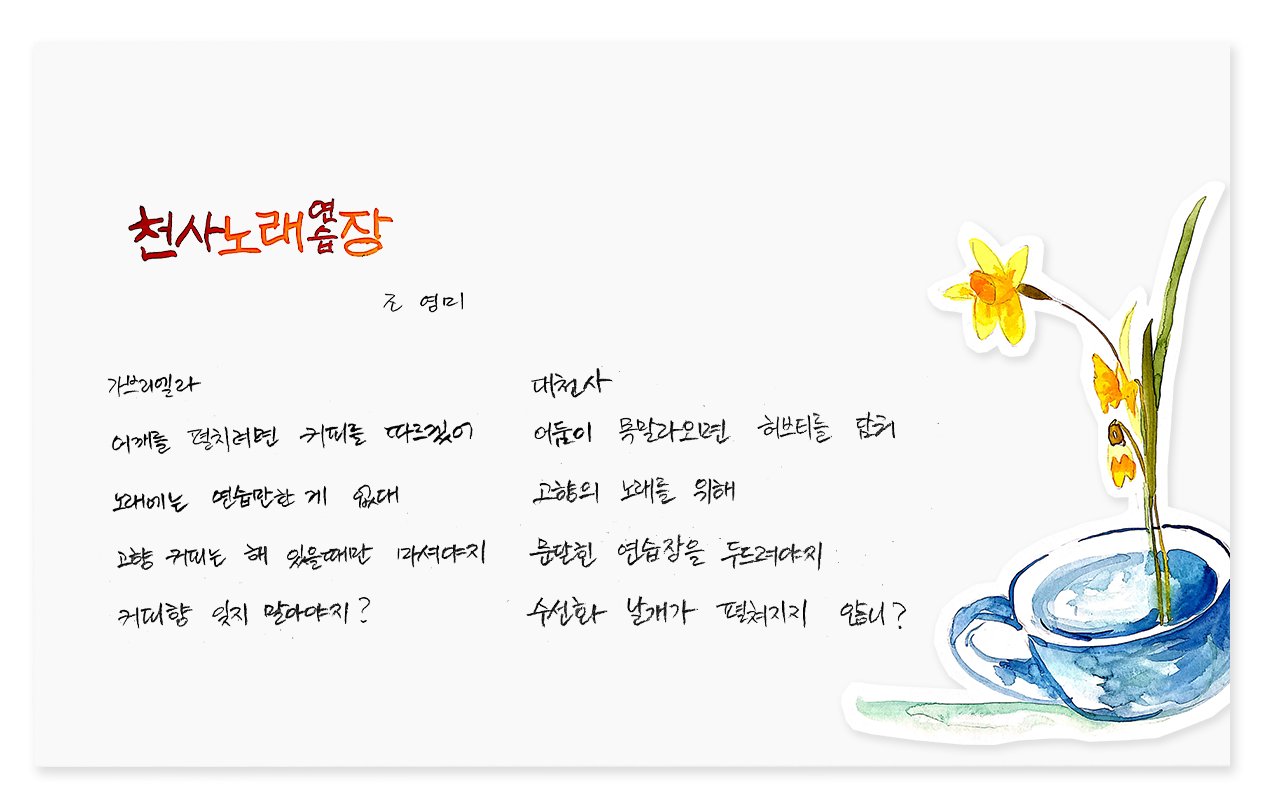 천사노래연습장
조 영미
가브리엘라
어깨를 펼치려면 커피를 따르겠어
노래에는 연습만한 게 없대
고향 커피는 해 있을때만 마셔야지
커피향 잊지 말아야지?
대천사
어둠이 목말라오면 허브티를 담궈
고향의 노래를 위해
문닫힌 연습장을 두드려야지
수선화 날개가 펼쳐지지 않니?